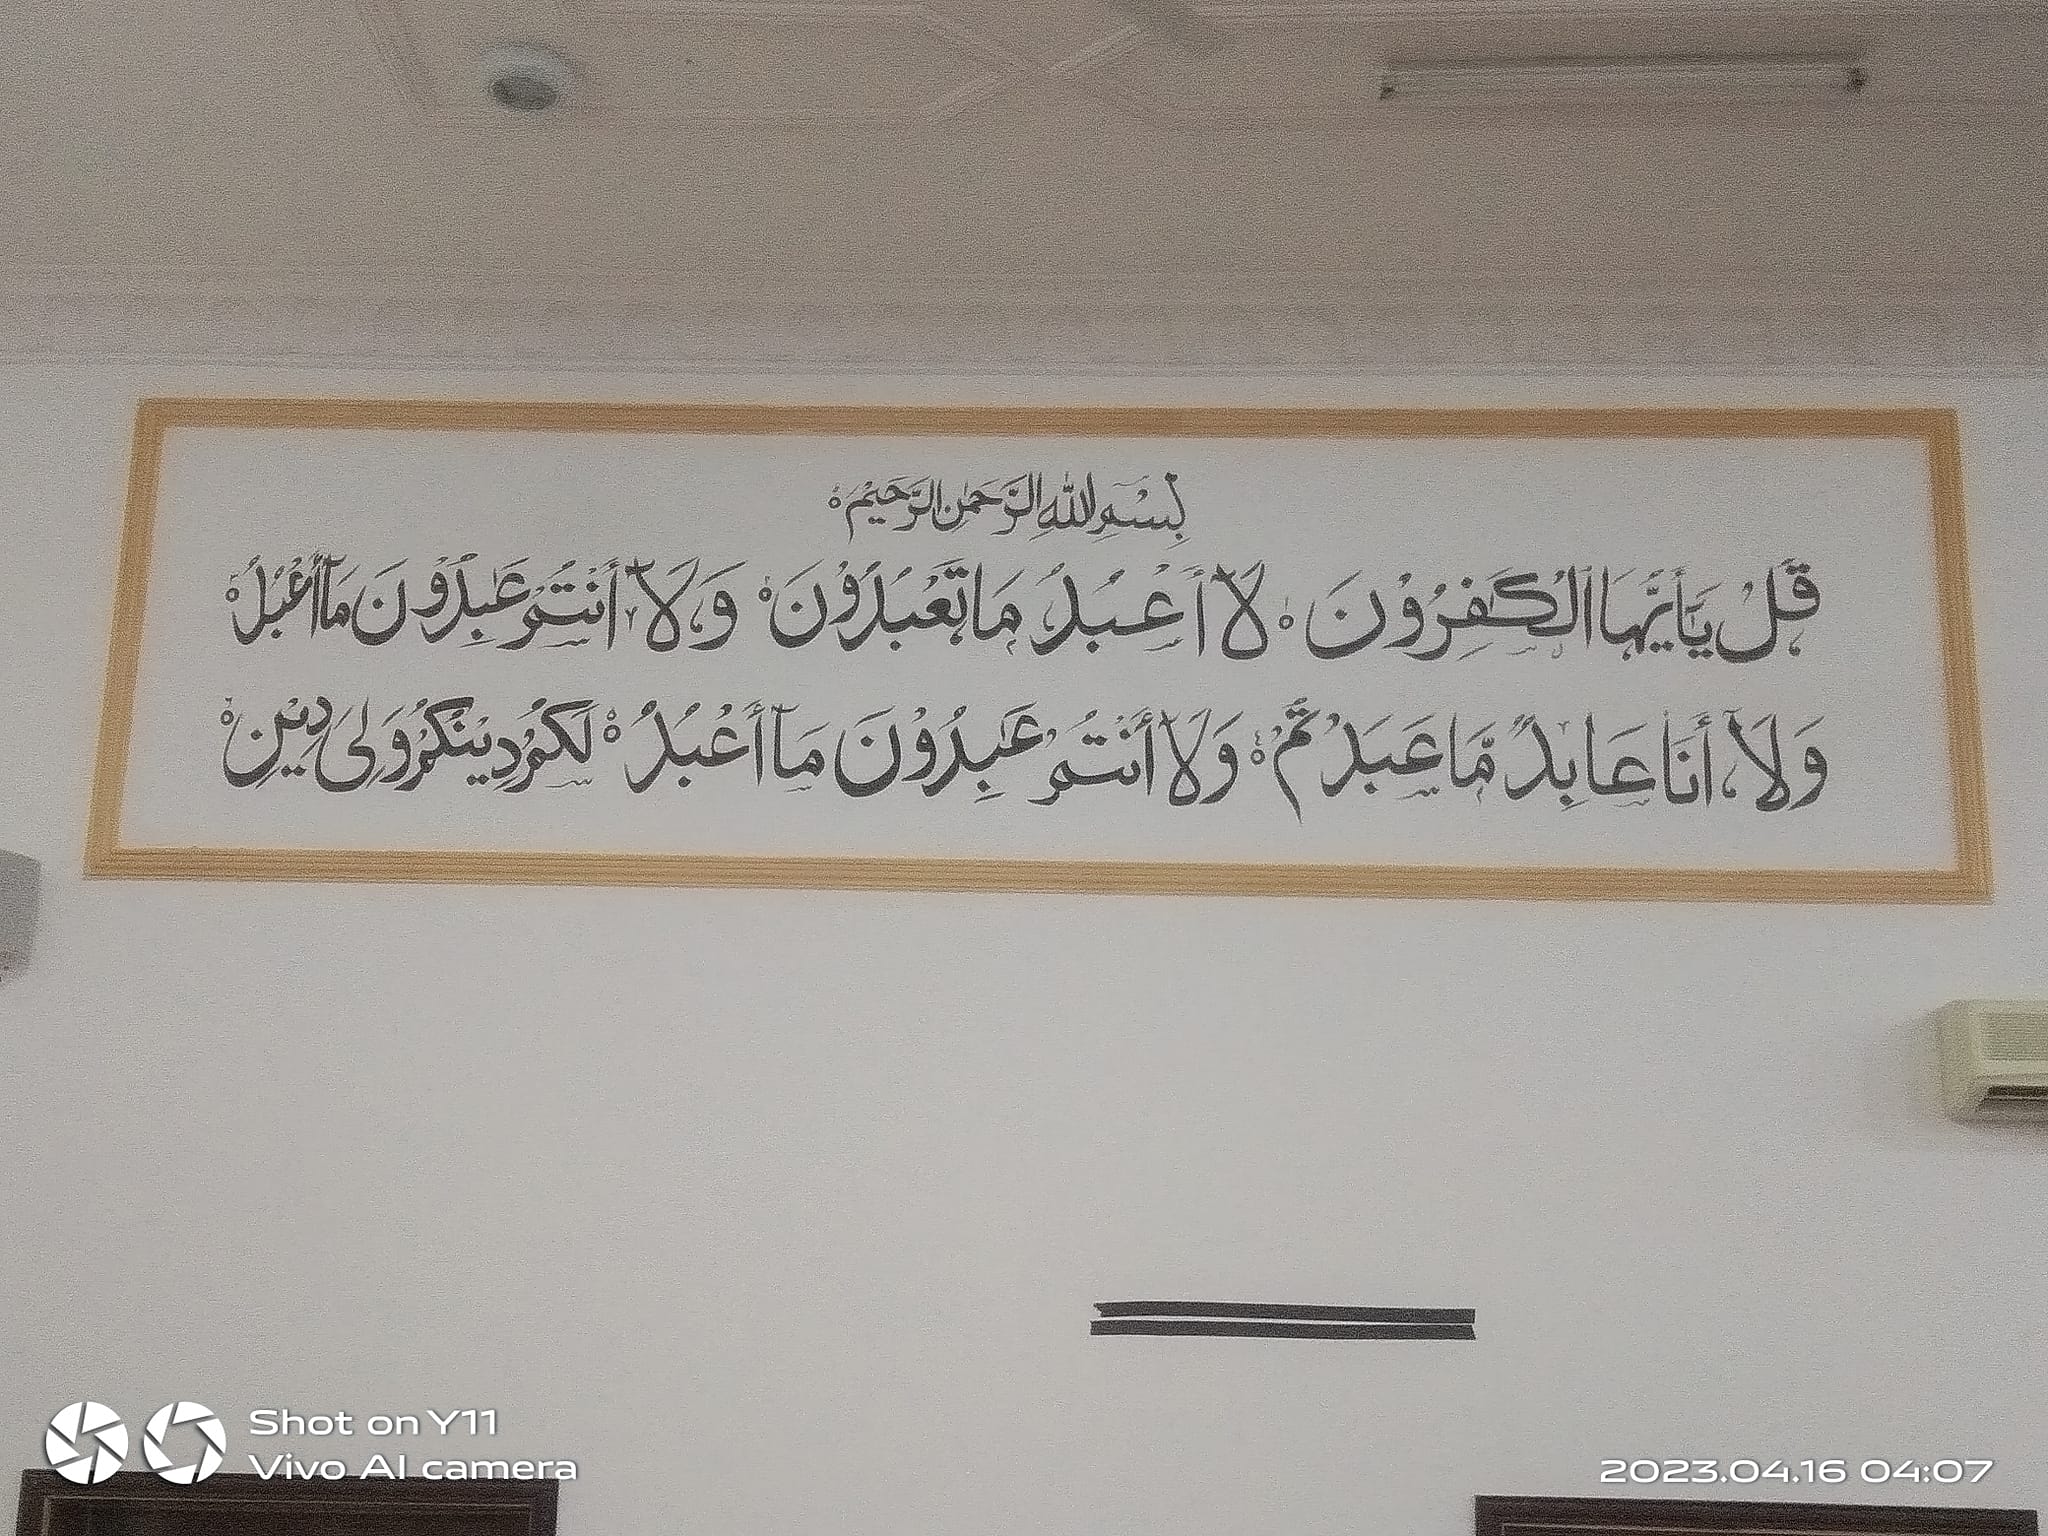 بِسْمِ اللّٰهِ الرَّحْمٰنِ الرَّحِيْمِ
قُلْ يَا أَيُّهَا الْكٰفِرُوْنَ لَا أَعْبُدُ مَا تَعْبُدُوْنَ وَلَا أَنْتُمْ عٰبِدُوْنَ مَا أَعْبُدُ
وَلَا أَنَا عَابِدٌ مَّا عَبَدْتُّمْ وَلَا أَنْتُمْ عٰبِدُوْنَ مَا أَعْبُدُ لَكُمْ دِيْنُكُمْ وَلِىَ دِيْنِ
Shot on Y11
Vivo AI camera
2023.04.16 04:07